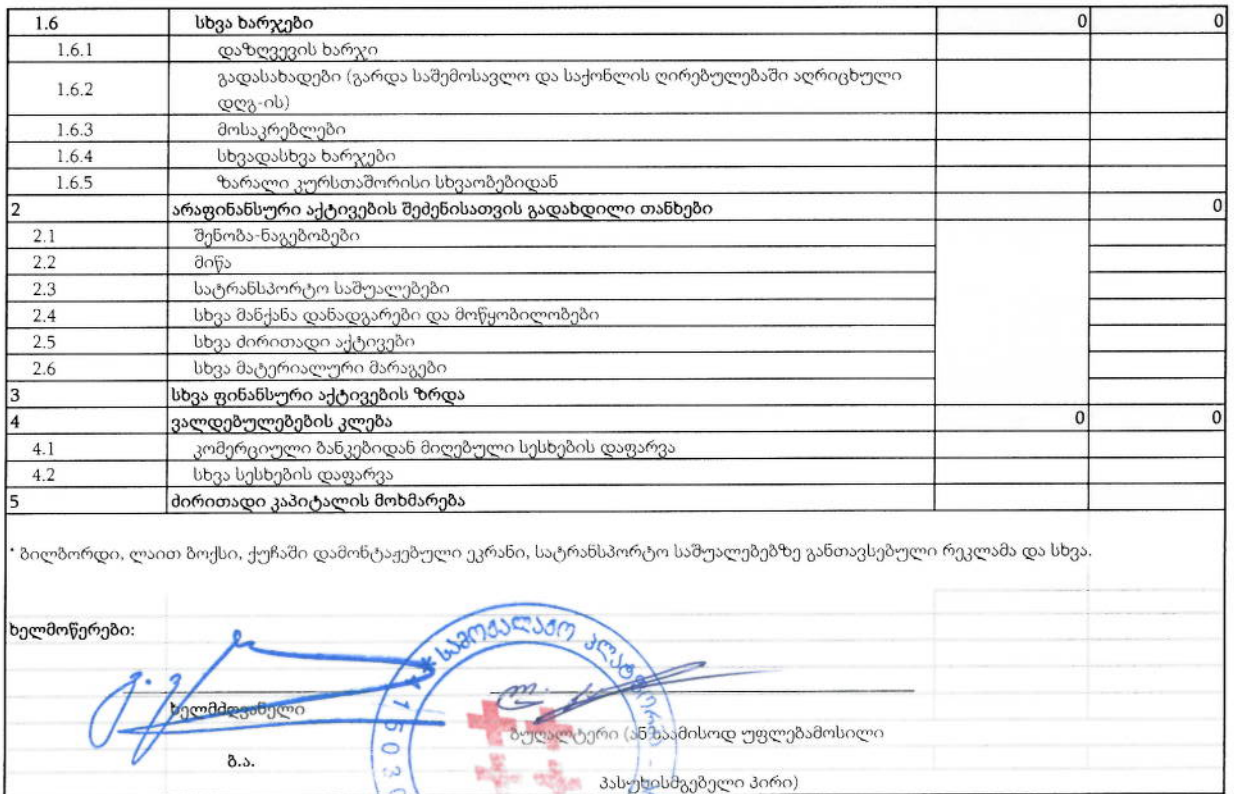 1.6 სხვა ხარჯები 0 0
1.6.1 დაზღვევის ხარჯი
1.6.2 გადასახადები (გარდა საშემოსავლო და საქონლის ღირებულებაში აღრიცხული
დღგ-ის)
1.6.3 მოსაკრებლები
1.6.4 სხვადასხვა ხარჯები
1.6.5 ზარალი კურსთაშორისი სხვაობებიდან
2 არაფინანსური აქტივების შეძენისათვის გადახდილი თანხები 0
2.1 შენობა-ნაგებობები
2.2 მიწა
2.3 სატრანსპორტო საშუალებები
2.4 სხვა მანქანა დანადგარები და მოწყობილობები
2.5 სხვა ძირითადი აქტივები
2.6 სხვა მატერიალური მარაგები
3 სხვა ფინანსური აქტივების ზრდა
4 ვალდებულებების კლება 0 0
4.1 კომერციული ბანკებიდან მიღებული სესხების დაფარვა
4.2 სხვა სესხების დაფარვა
5 ძირითადი კაპიტალის მოხმარება
* ბილბორდი, ლაით ბოქსი, ქუჩაში დამონტაჟებული ეკრანი, სატრანსპორტო საშუალებებზე განთავსებული რეკლამა და სხვა.
ხელმოწერები:
სამოქალაქო პლატფორმა -
ხელმძღვანელი
1 5 0 3 0
ბუღალტერი (ან საამისოდ უფლებამოსილი
ბ.ა.
პასუხისმგებელი პირი)